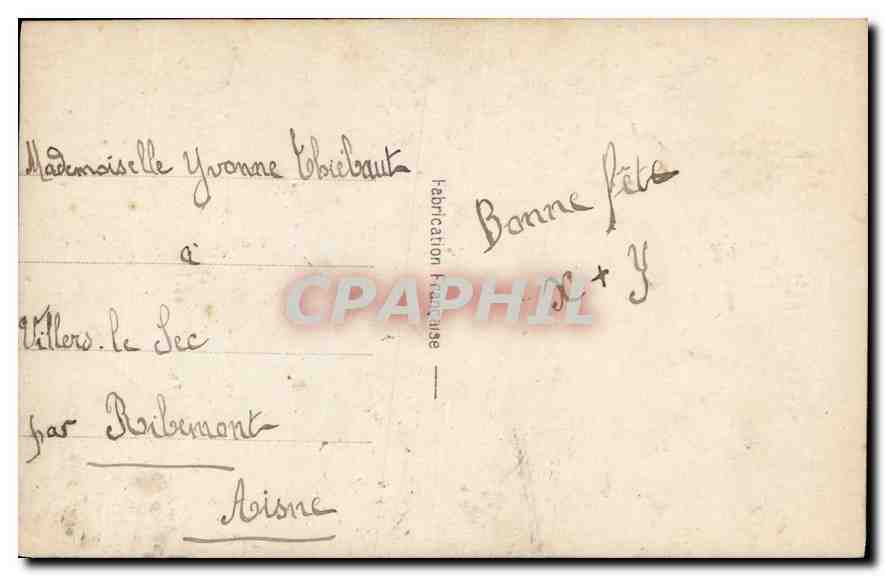 Mademoiselle Yvonne Thiébaut
à
Villers-le Sec
par Ribemont
Aisne
Fabrication Française
Bonne fête
x + y
CPAPHIL